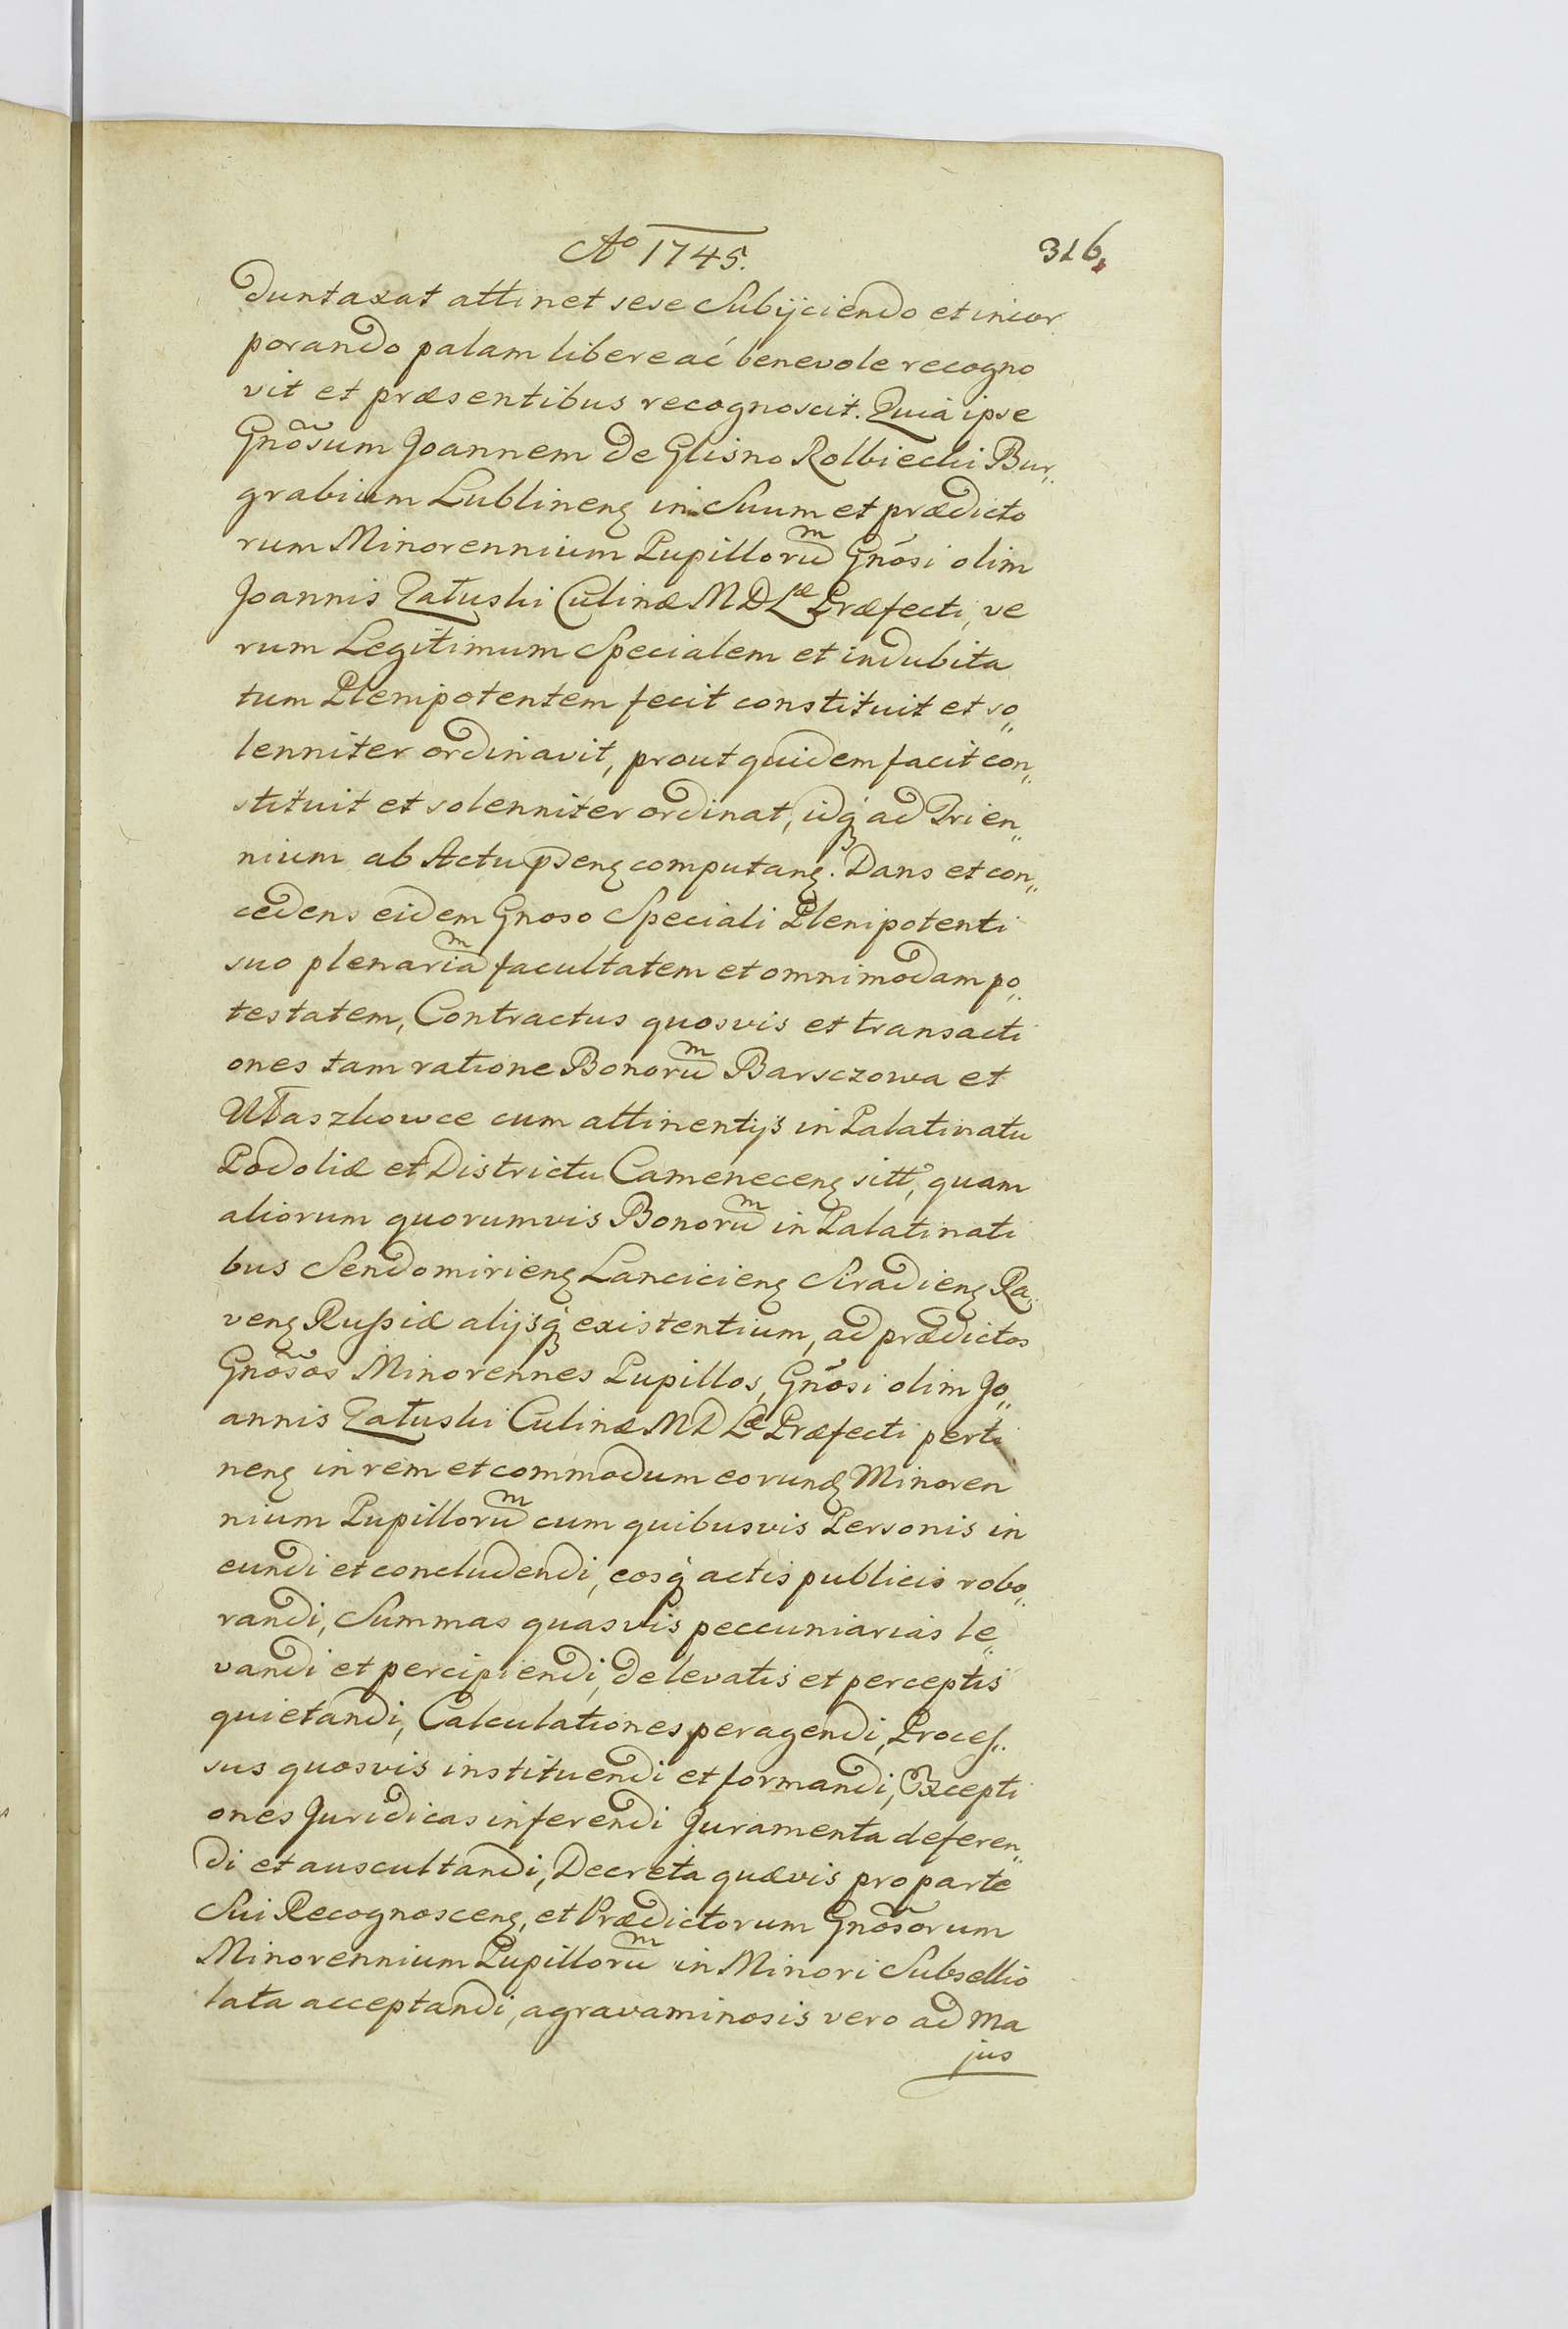 Aº 1745.
316.
duntaxat attinet sese Subijciendo et incor
porando palam libere ać benevole recogno
vit et præsentibus recognoscit. Quia ipse
Gnõsum Joannem de Glisno Rolbiecki Bur„
grabium Lublinenꝫ in Suum et prædicto
rum Minorennium Pupilloruͫ Gnõsi olim
Joannis Załuski Culinæ M D Lᵃᵉ Præfecti, ve
rum Legitimum Specialem et indubita
tum Plenipotentem fecit constituit et so„
lenniter ordinavit, prout quidem facit con„
stituit et solenniter ordinat, idq́ꝫ ad Trien„
nium ab Actu p̄senꝫ computanꝫ. Dans et con„
cedens eidem Gnoso Speciali Plenipotenti
suo plenariaͫ facultatem et omnimodam po„
testatem, Contractus quosvis et transacti
ones tam ratione Bonoruͫ Barsczowa et
Ułaszkowce cum attinentijs in Palatinatu
Podoliæ et Districtu Camenecenꝫ sitt, quam
aliorum quorumvis Bonoruͫ in Palatinati
bus Sendomirienꝫ Lancicienꝫ Siradienꝫ Ra„
venꝫ Rußiæ alijsq́ꝫ existentium, ad prædictos
Gnõsos Minorennes Pupillos, Gnõsi olim Jo„
annis Załuski Culinæ M D Lᵃᵉ Præfecti perti
nenꝫ in rem et commodum eorundꝫ Minoren
nium Pupilloruͫ cum quibusvis Personis in
eundi et concludendi, eosq́ actis publicis robo„
randi, Summas quasvis peccuniarias le„
vandi et percipiendi, de levatis et perceptis
quietandi, Calculationes peragendi, Proces„
sus quosvis instituendi et formandi, Excepti
ones Juridicas inferendi Juramenta deferen„
di et auscultandi, Decreta quævis pro parte
Sui Recognoscenꝫ, et Prædictorum Gnõsorum
Minorennium Pupilloruͫ in Minori Subsellio
lata acceptandi, agravaminosis vero ad Ma
jus